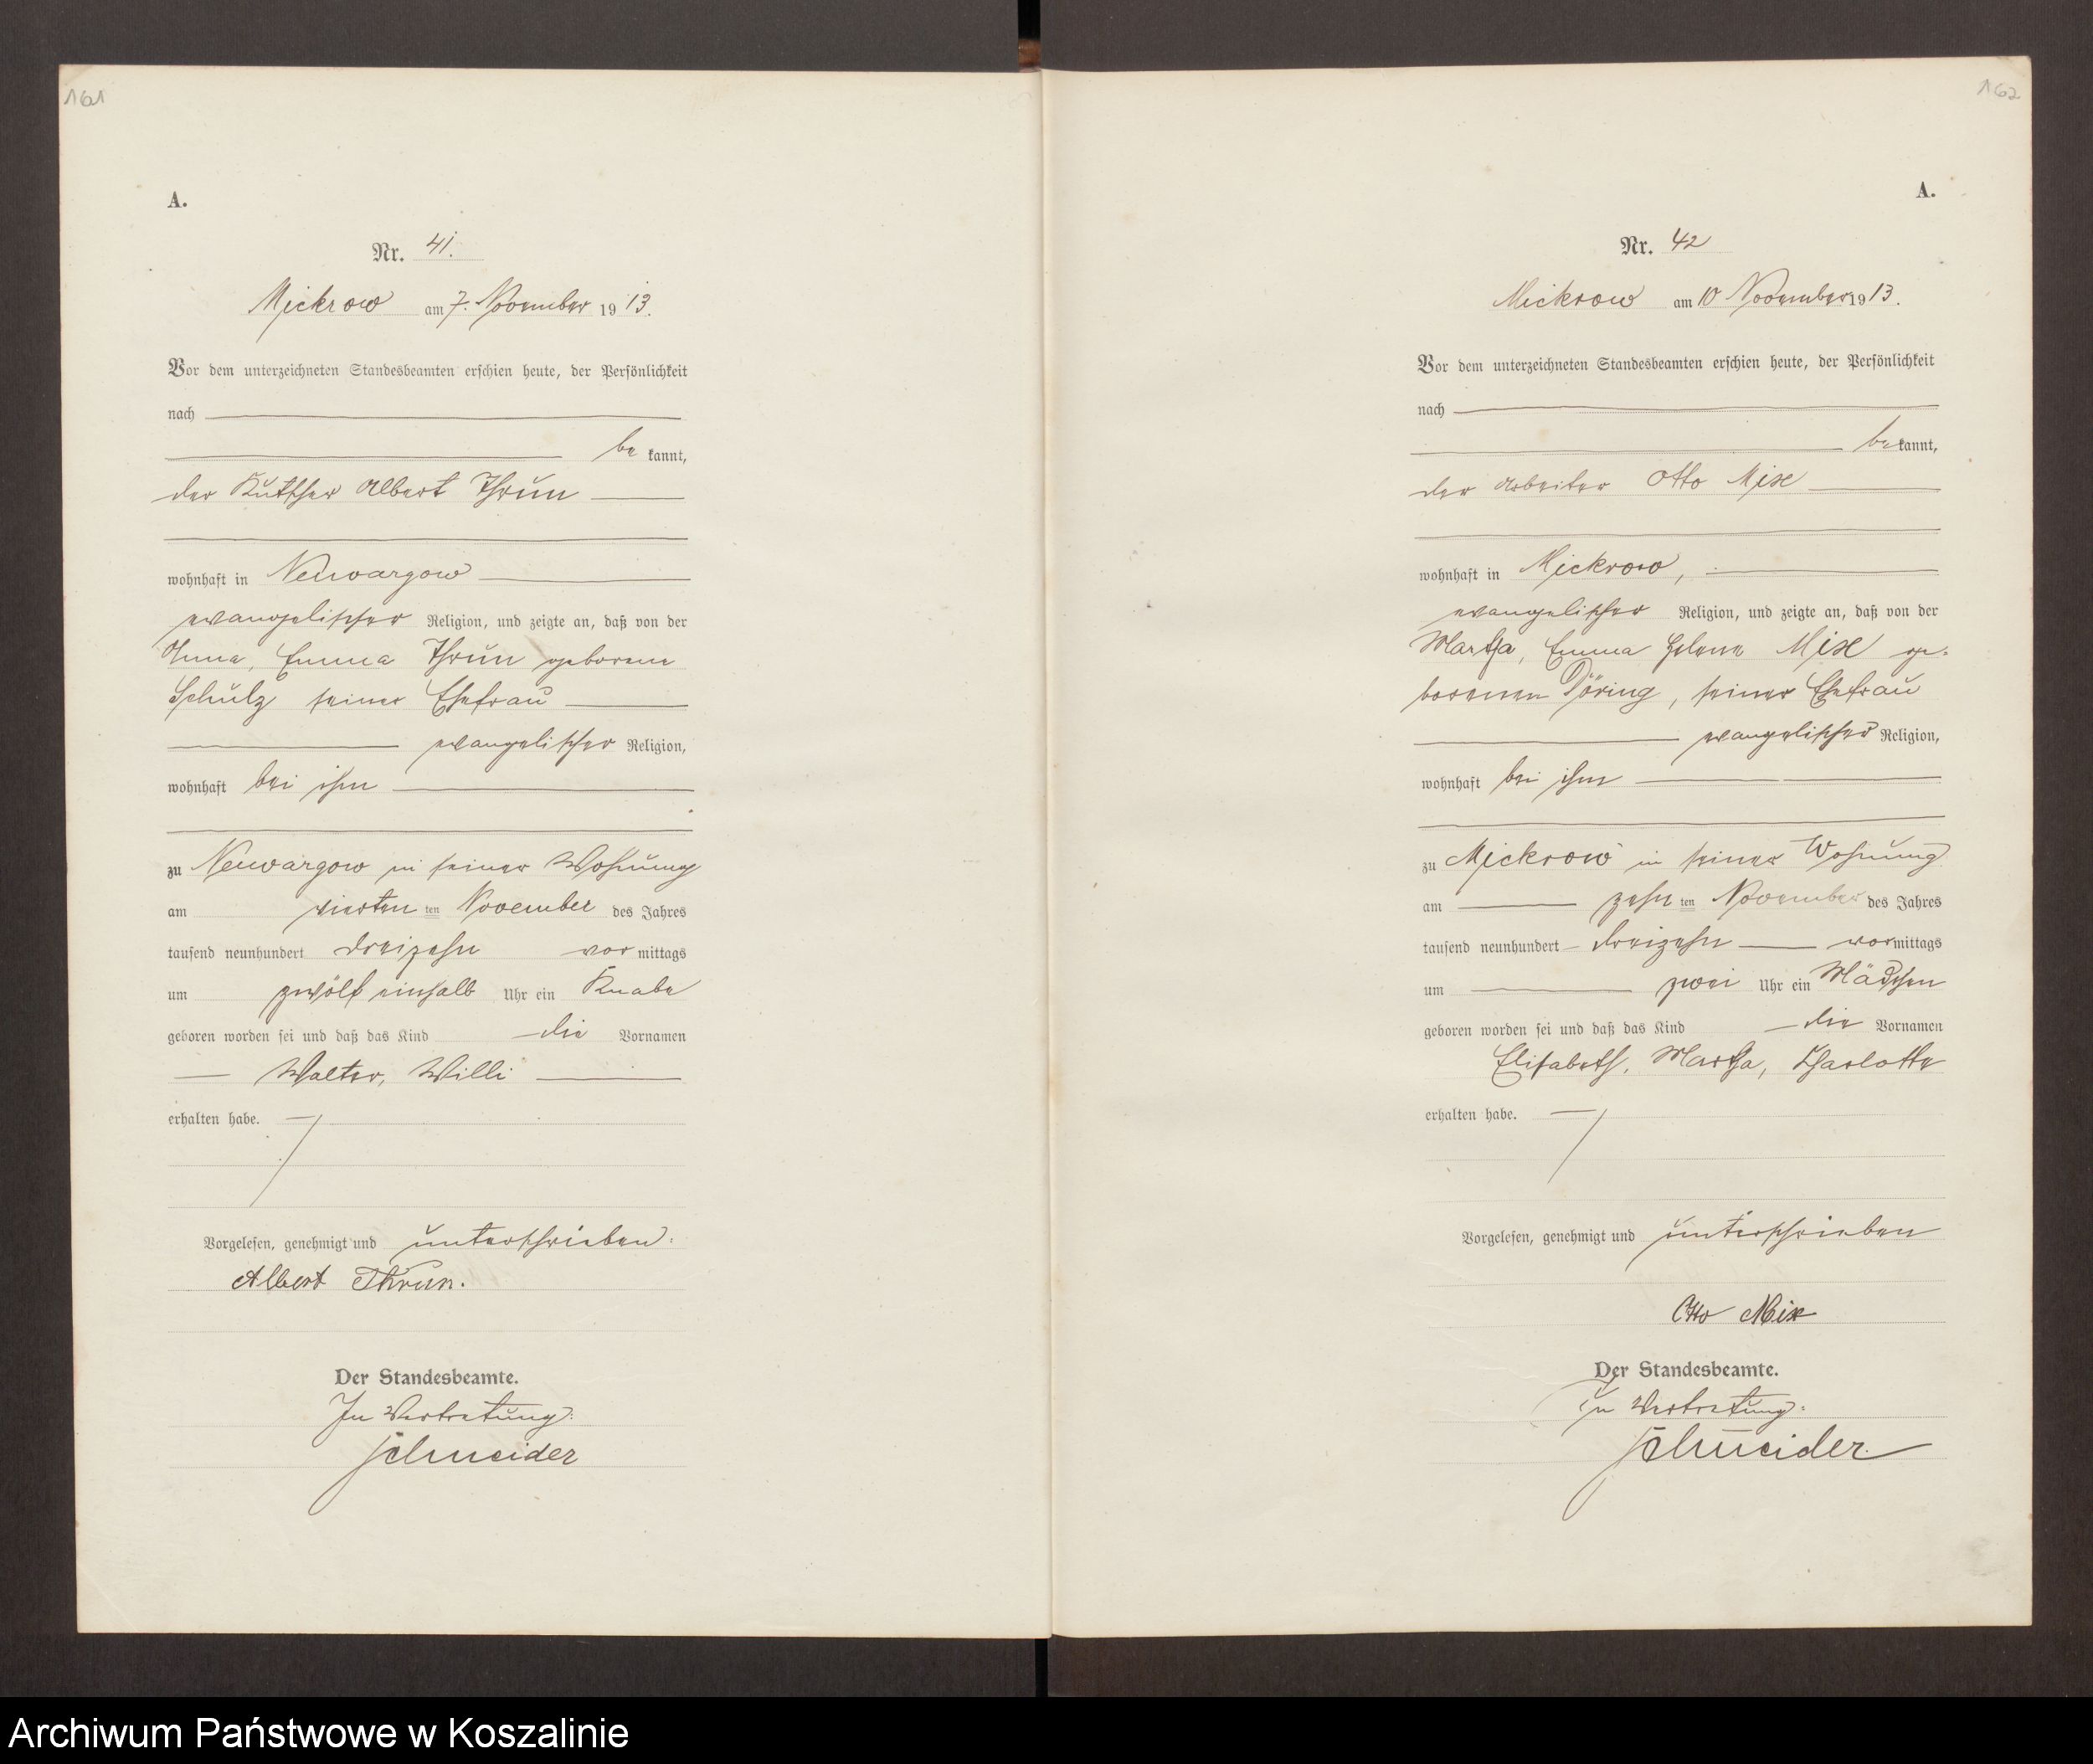 161
A.
Nr. 41.
Mickrow am 7. November 1913.
Vor dem unterzeichneten Standesbeamten erschien heute, der Persönlichkeit
nach
be kannt,
der Kutscher Albert Thrun
wohnhaft in Neuwargow
evangelischer Religion, und zeigte an, daß von der
Anna, Emma Thrun geborene
Schulz seiner Ehefrau
evangelischer Religion,
wohnhaft bei ihm
zu Neuwargow in seiner Wohnung
am vierten ten November des Jahres
tausend neunhundert dreizehn vor mittags
um zwölf einhalb Uhr ein Knabe
geboren worden sei und daß das Kind die Vornamen
Walter, Willi
erhalten habe.
Vorgelesen, genehmigt und unterschrieben:
Albert Thrun.
Der Standesbeamte.
In Vertretung:
Schneider
162
A.
Nr. 42
Mickrow am 10 November 1913.
Vor dem unterzeichneten Standesbeamten erschien heute, der Persönlichkeit
nach
be kannt,
der Arbeiter Otto Mix
wohnhaft in Mickrow,
evangelischer Religion, und zeigte an, daß von der
Martha, Emma Helene Mix ge-
borenen Döring, seiner Ehefrau
evangelischer Religion,
wohnhaft bei ihm
zu Mickrow in seiner Wohnung
am zehn ten November des Jahres
tausend neunhundert dreizehn vormittags
um zwei Uhr ein Mädchen
geboren worden sei und daß das Kind die Vornamen
Elisabeth, Martha, Charlotte
erhalten habe.
Vorgelesen, genehmigt und unterschrieben
Otto Mix
Der Standesbeamte.
In Vertretung:
Schneider.
Archiwum Państwowe w Koszalinie